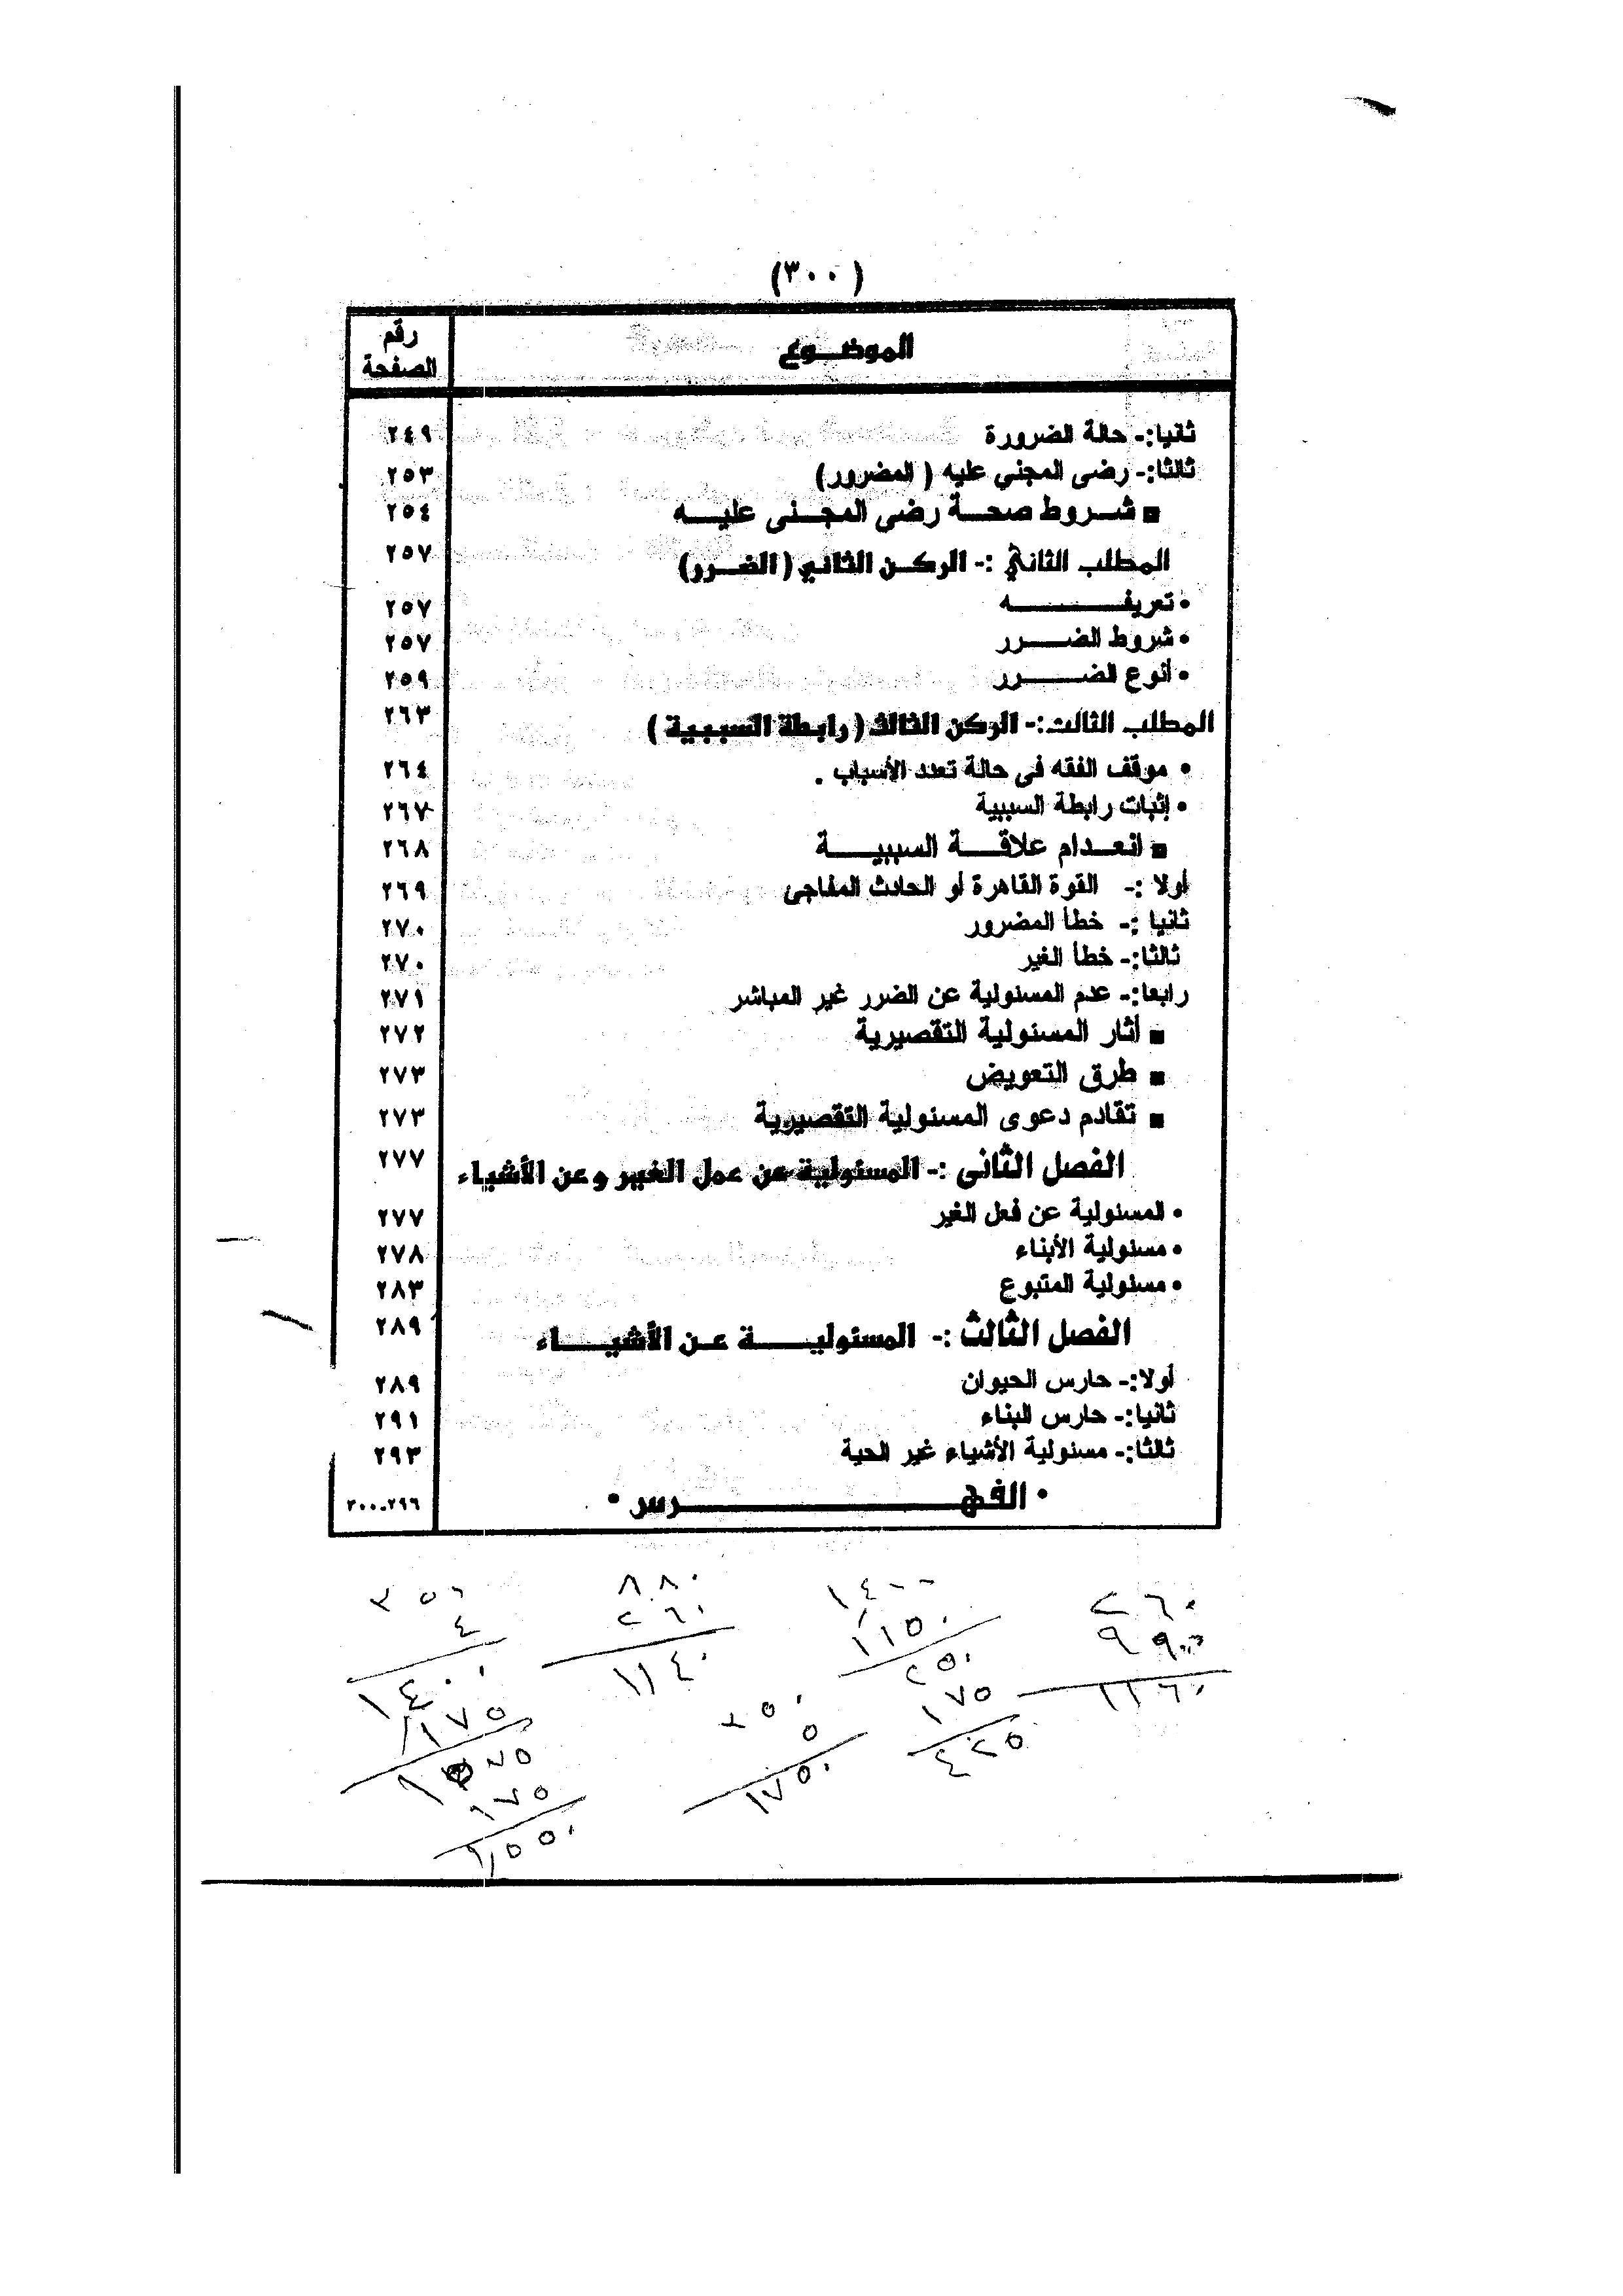 (٣٠٠)
الموضوع رقم الصفحة
ثانيا:- حالة الضرورة ٢٤٩
ثالثا:- رضى المجني عليه ( المضرور) ٢٥٣
■ شروط صحة رضى المجنى عليه ٢٥٤
المطلب الثاني :- الركن الثاني (الضرر) ٢٥٧
• تعريفه ٢٥٧
• شروط الضرر ٢٥٧
• أنوع الضرر ٢٥٩
المطلب الثالث:- الركن الثالث (رابطة السببية ) ٢٦٣
• موقف الفقه فى حالة تعدد الأسباب . ٢٦٤
• إثبات رابطة السببية ٢٦٧
■ انعدام علاقة السببية ٢٦٨
أولا :- القوة القاهرة أو الحادث المفاجى ٢٦٩
ثانيا :- خطأ المضرور ٢٧٠
ثالثا:- خطأ الغير ٢٧٠
رابعا:- عدم المسئولية عن الضرر غير المباشر ٢٧١
■ أثار المسئولية التقصيرية ٢٧٢
■ طرق التعويض ٢٧٣
■ تقادم دعوى المسئولية التقصيرية ٢٧٣
الفصل الثانى :- المسئولية عن عمل الغير وعن الأشياء ٢٧٧
• المسئولية عن فعل الغير ٢٧٧
• مسئولية الأبناء ٢٧٨
• مسئولية المتبوع ٢٨٣
الفصل الثالث :- المسئولية عن الأشياء ٢٨٩
أولا:- حارس الحيوان ٢٨٩
ثانيا:- حارس البناء ٢٩١
ثالثا:- مسئولية الأشياء غير الحية ٢٩٣
• الفهرس • ٢٩٦-٣٠٠
٢٦٠
١١٦٠
١٤٠٠
١١٥٠
٢٥٠
١٧٥
٤٢٥
٨٨٠
٢٦٠
١١٤٠
٥
١٧٥٠
٣٥٠
٤
١٤٠٠
١٧٥
١٧٥